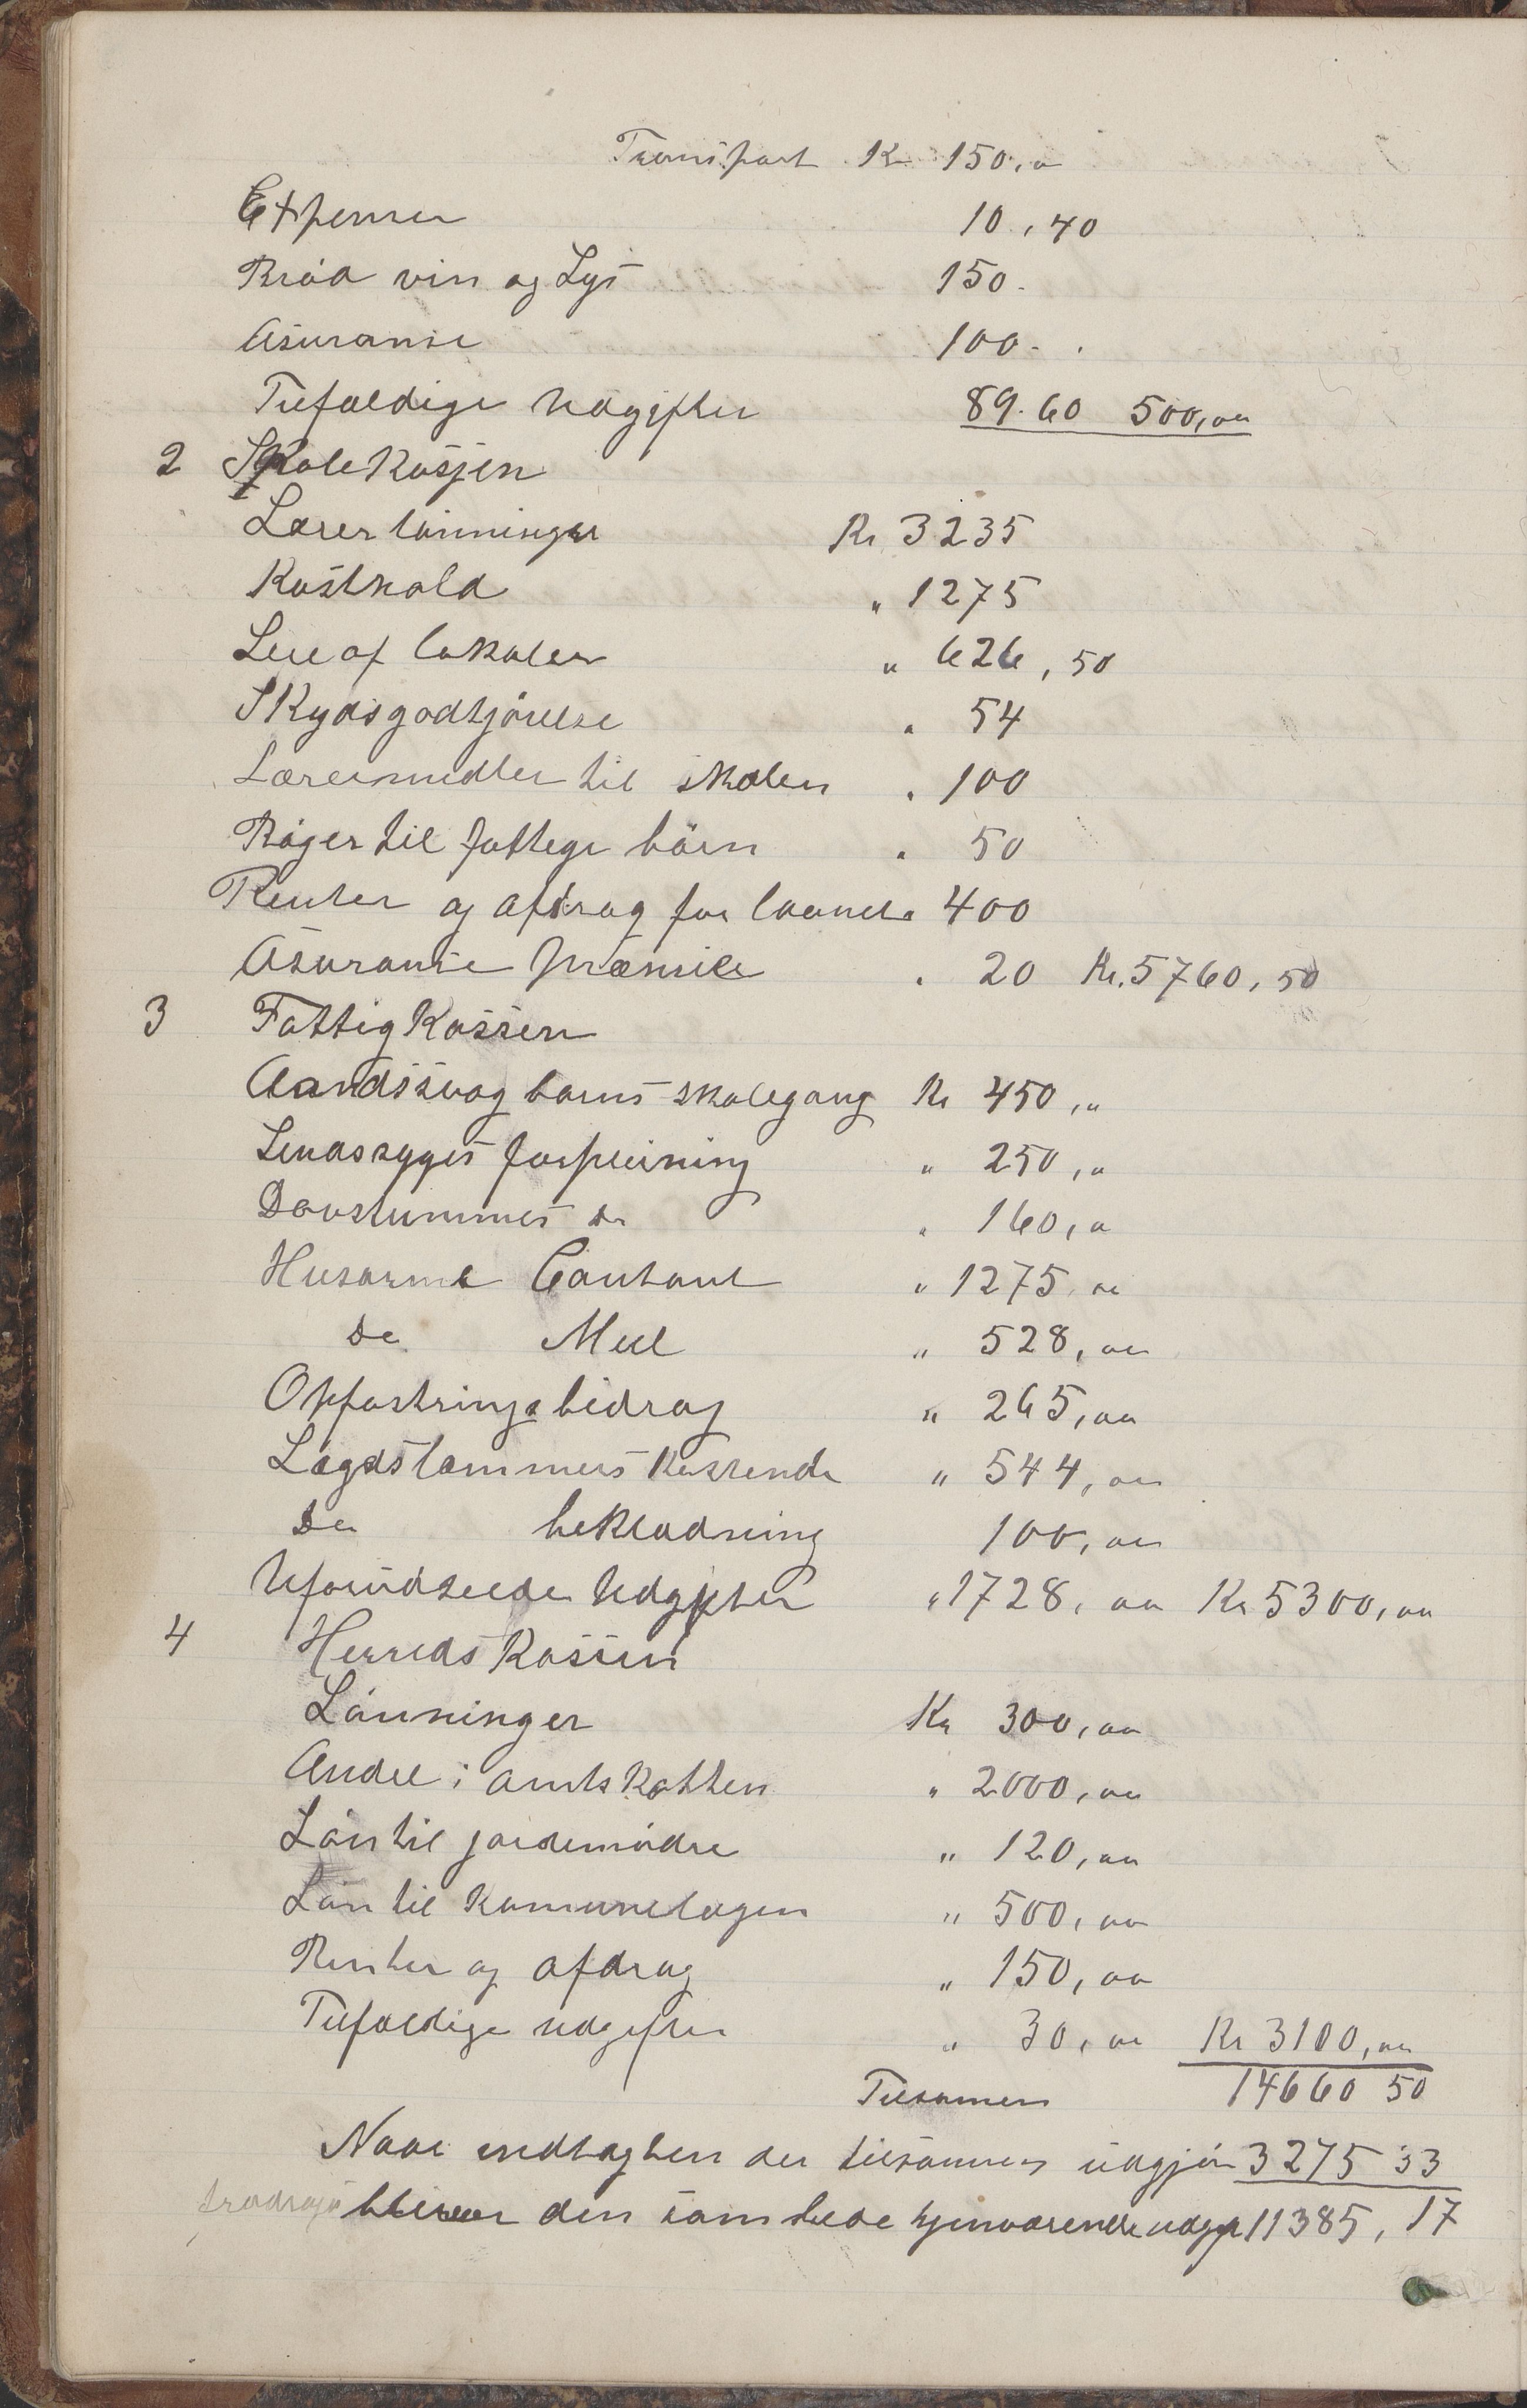 Transport Kr 150,"
Expenser 10,40
Bröd vin og Lys 150.
Asuranse 100 - .
Tilfældige Udgifter 89.60 500,oo
2 Skolekassen
Lærerlönninger Kr 3235
Kosthold " 1275
Leie af lokaler " 626,50
Skydsgodtjörelse " 54
Læremidler til skolen " 100
Böger til fattige börn " 50
Renter og afdrag for laanet " 400
Asuranse præmie " 20 Kr. 5760,50
3 Fattigkassen
Aandssvag barns skolegang Kr 450,"
Sindssyges forpleining " 250,"
Døvstummes do " 160,"
Husarme Contant " 1275 oo
Do Mel " 528,oo
Opfostringsbidrag " 265,oo
Lægdslemmers kurrende " 544,oo
Do beklædning 100,oo
Uforudseede Udgifter " 1728,oo Kr 5300,oo
4 Herredskassen
Lönninger Kr 300,oo
Andel i amtskatten " 2000,oo
Lön til jordemödre " 120,oo
Lön til Komunelægen " 500,oo
Renter og afdrag " 150,oo
Tilfældige udgifter " 30,oo Kr 3100,oo
Tilsamen 14660 50
Naar indtægten der tilsammen udgjör 3275 33
fradrages bliver den samlede gjenværende udgft 11385,17